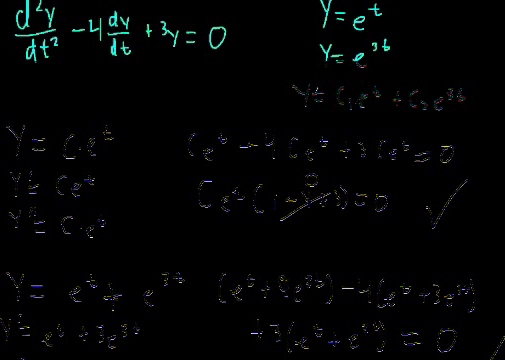 d²y/dt² - 4 dy/dt + 3y = 0
y = e^t
y = e^3t
y = c₁e^t + c₂e^3t
y = c₁e^t
ce^t - 4ce^t + 3ce^t = 0
y' = ce^t
ce^t ( = 0 ✓
y'' = c₁e^t
y = e^t + e^3t
(e^t + 9e^3t) - 4(e^t + 3e^3t)
y' = e^t + 3e^3t
+ 3(e^t + e^3t) = 0